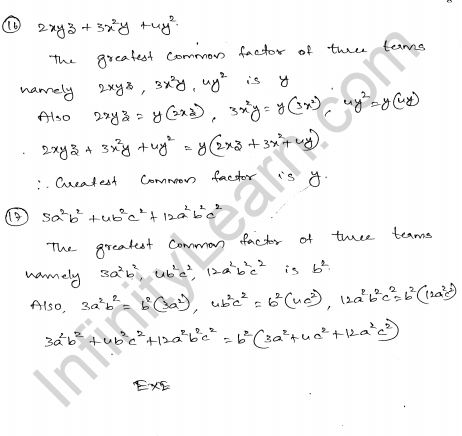 (16) 2xyz + 3x²y + 4y².
The greatest common factor of three terms
namely 2xyz, 3x²y, 4y² is y
Also 2xyz = y(2xz), 3x²y = y(3x²), 4y² = y(4y)
. 2xyz + 3x²y + 4y² = y(2xz + 3x² + 4y)
∴ Greatest common factor is y.
(17) 3a²b² + 4b²c² + 12a²b²c²
The greatest common factor of three terms
namely 3a²b², 4b²c², 12a²b²c² is b².
Also, 3a²b² = b²(3a²), 4b²c² = b²(4c²), 12a²b²c² = b²(12a²c²)
3a²b² + 4b²c² + 12a²b²c² = b²(3a² + 4c² + 12a²c²)
EXE
InfinityLearn.com